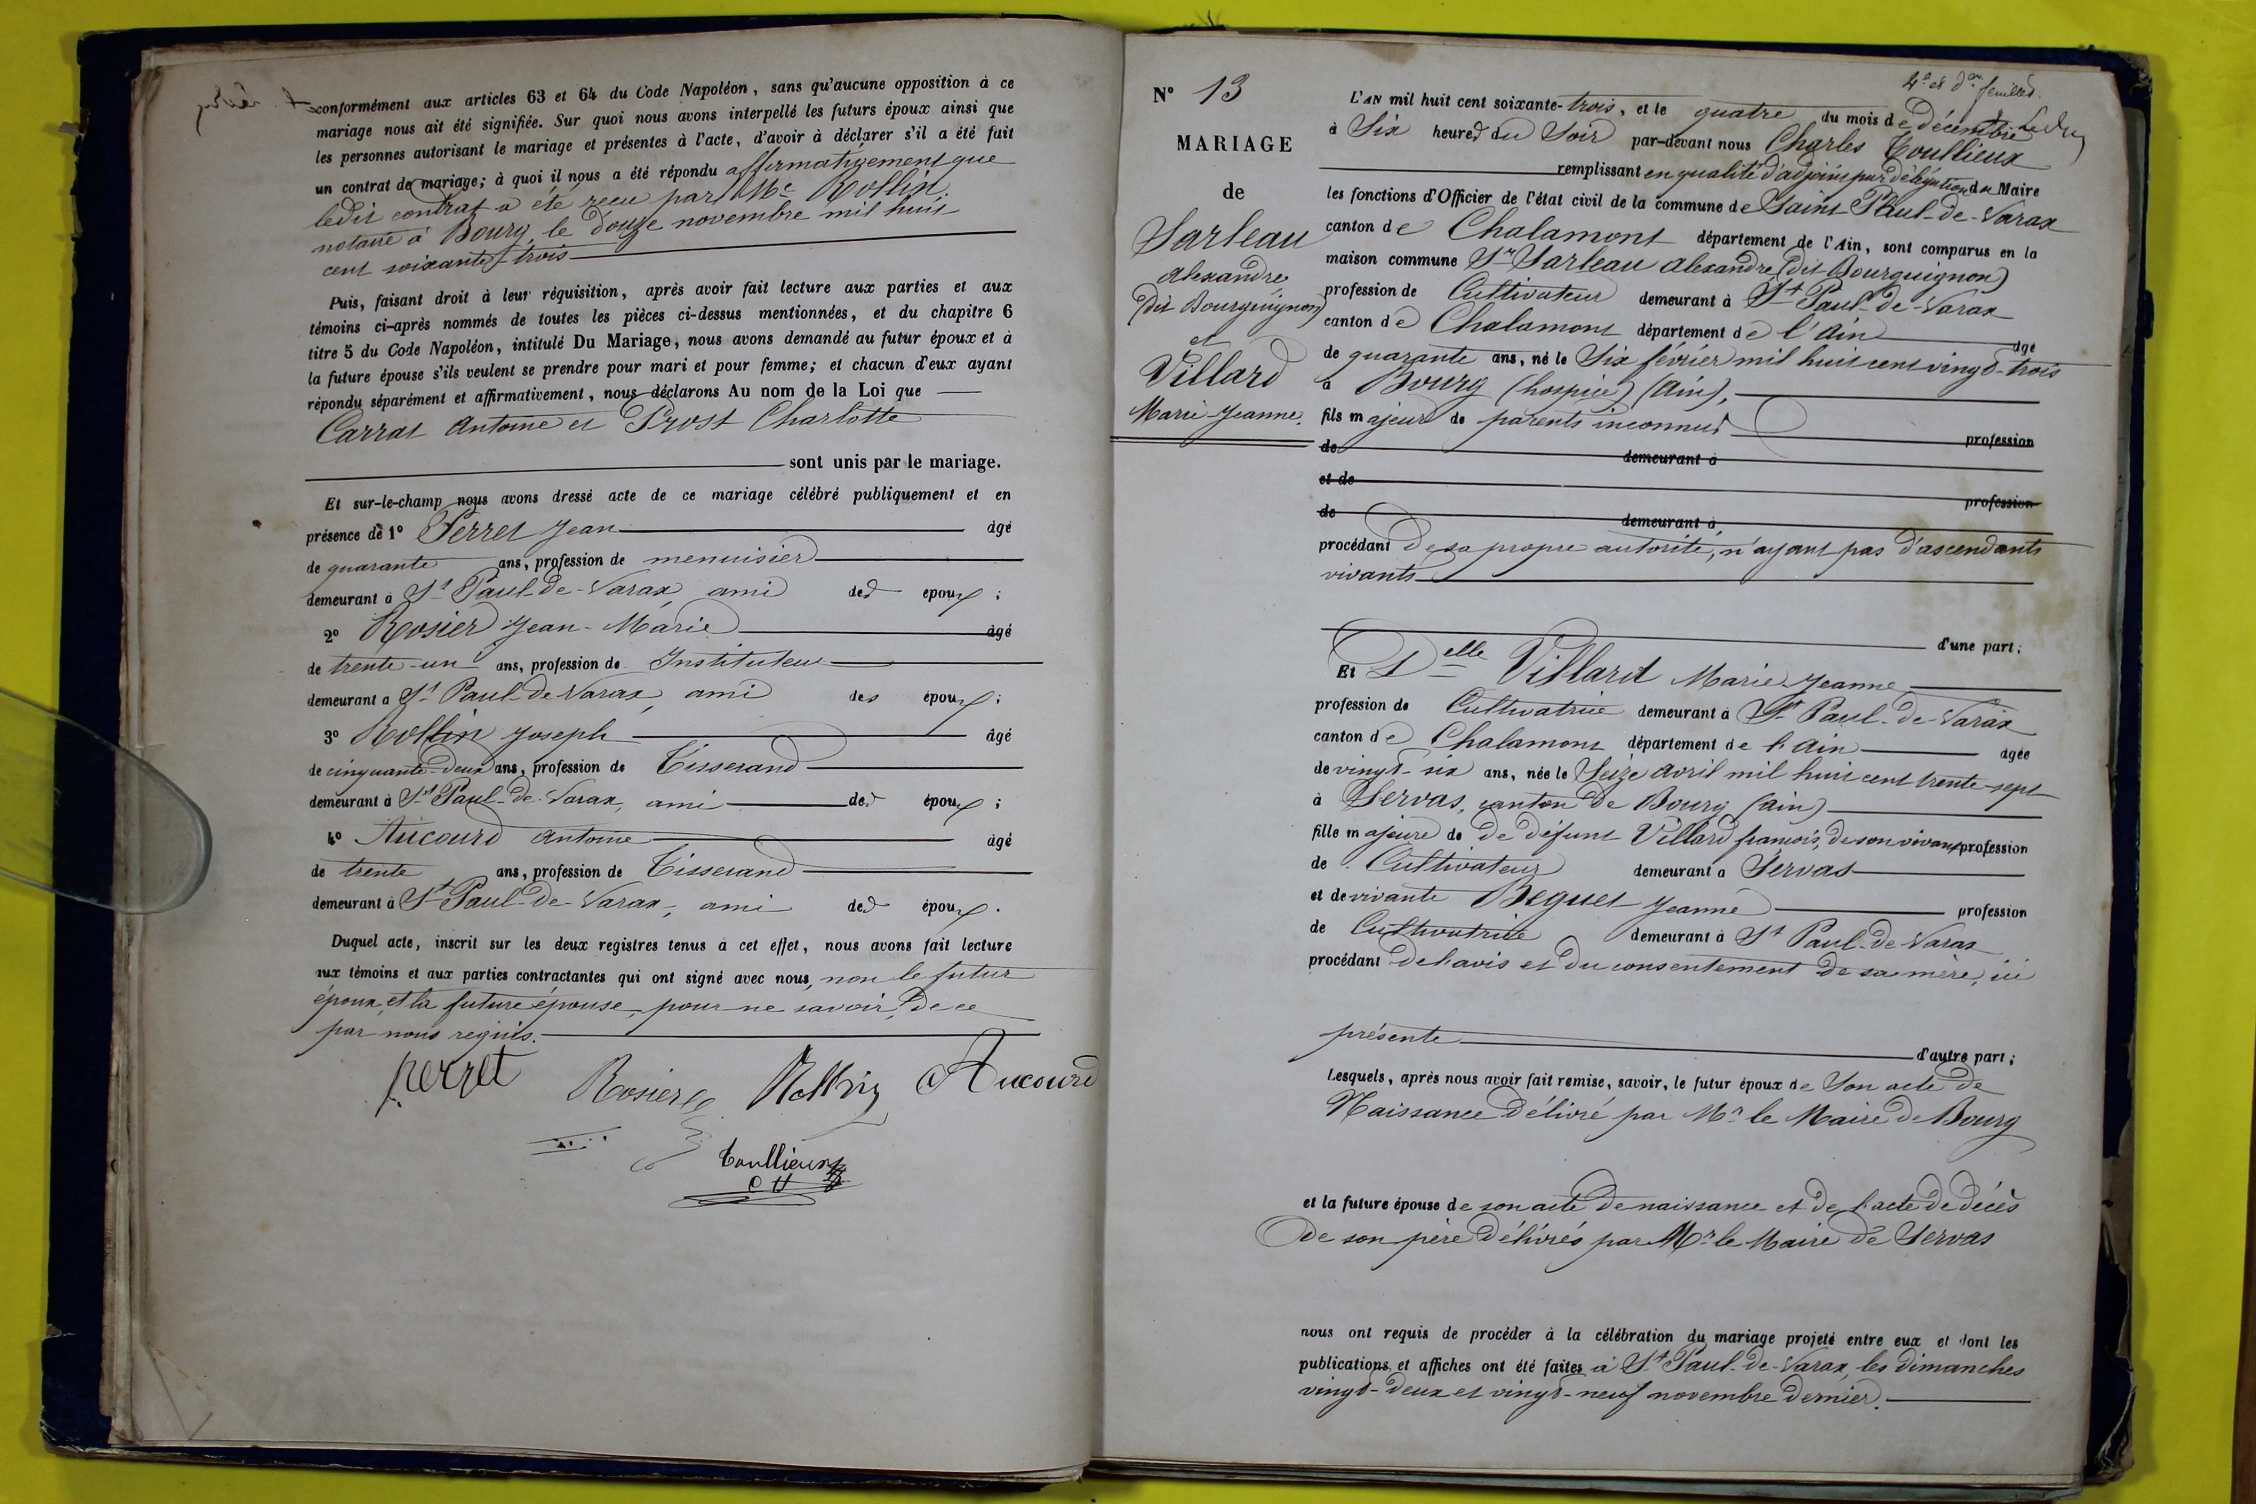 conformément aux articles 63 et 64 du Code Napoléon, sans qu'aucune opposition à ce
mariage nous ait été signifiée. Sur quoi nous avons interpellé les futurs époux ainsi que
les personnes autorisant le mariage et présentes à l'acte, d'avoir à déclarer s'il a été fait
un contrat de mariage; à quoi il nous a été répondu affirmativement que
ledit contrat a été reçu par Me Rollin
notaire à Bourg, le douze novembre mil huit
cent soixante-trois
Puis, faisant droit à leur réquisition, après avoir fait lecture aux parties et aux
témoins ci-après nommés de toutes les pièces ci-dessus mentionnées, et du chapitre 6
titre 5 du Code Napoléon, intitulé Du Mariage, nous avons demandé au futur époux et à
la future épouse s'ils veulent se prendre pour mari et pour femme; et chacun d'eux ayant
répondu séparément et affirmativement, nous déclarons Au nom de la Loi que
Carrat Antoine et Prost Charlotte
sont unis par le mariage.
Et sur-le-champ nous avons dressé acte de ce mariage célébré publiquement et en
présence de 1° Perret Jean âgé
de quarante ans, profession de menuisier
demeurant à St Paul-de-Varax ami des époux ;
2° Rosier Jean-Marie âgé
de trente-un ans, profession de Instituteur
demeurant à St Paul-de-Varax, ami des époux ;
3° Rollin Joseph âgé
de cinquante-deux ans, profession de Tisserand
demeurant à St Paul-de-Varax, ami des époux ;
4° Aucourd Antoine âgé
de trente ans, profession de Tisserand
demeurant à St Paul-de-Varax, ami des époux .
Duquel acte, inscrit sur les deux registres tenus à cet effet, nous avons fait lecture
aux témoins et aux parties contractantes qui ont signé avec nous, non le futur
époux, et la future épouse, pour ne savoir, de ce
par nous requis.
perret Rosier Rollin Aucourd
Toullieux
N° 13
MARIAGE
de
Sarleau
Alexandre
(dit Bourguignon)
et
Villard
Marie-Jeanne.
4e et der feuillet.
L'AN mil huit cent soixante-trois, et le quatre du mois de décembre
à Six heures du Soir par-devant nous Charles Toullieux
remplissant en qualité d'adjoint par délégation du Maire
les fonctions d'Officier de l'état civil de la commune de Saint Paul-de-Varax
canton de Chalamont département de l'Ain, sont comparus en la
maison commune Sr Sarleau Alexandre (dit Bourguignon)
profession de Cultivateur demeurant à St Paul-de-Varax
canton de Chalamont département de l'Ain âgé
de quarante ans, né le Six février mil huit cent vingt-trois
à Bourg (hospice) (Ain),
fils majeur de parents inconnus profession
de demeurant à
et de profession
de demeurant à
procédant de sa propre autorité, n'ayant pas d'ascendants
vivants
d'une part;
Et Delle Villard Marie-Jeanne
profession de Cultivatrice demeurant à St Paul-de-Varax
canton de Chalamont département de l'Ain âgée
de vingt-six ans, née le Seize avril mil huit cent trente-sept
à Servas, canton de Bourg (Ain)
fille majeure de de défunt Villard françois, de son vivant profession
de Cultivateur demeurant à Servas
et de vivante Beguet Jeanne profession
de Cultivatrice demeurant à St Paul-de-Varax
procédant de l'avis et du consentement de sa mère, ici
présente
d'autre part;
Lesquels, après nous avoir fait remise, savoir, le futur époux de Son acte de
Naissance délivré par Mr le Maire de Bourg
et la future épouse de son acte de naissance et de l'acte de décès
de son père délivrés par Mr le Maire de Servas
nous ont requis de procéder à la célébration du mariage projeté entre eux et dont les
publications et affiches ont été faites à St Paul-de-Varax, les dimanches
vingt-deux et vingt-neuf novembre dernier.